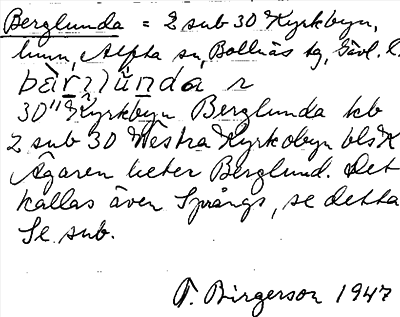 Berglunda = 2 sub 30 Kyrkbyn,
hmn, Alfta sn, Bollnäs tg, Gävl. l.
30 "Kyrkbyn Berglunda kb
2 sub 30 Westra Kyrkobyn bls K
Ägaren heter Berglund. Det
kallas även Språngs, se detta
Se sub.
T. Birgerson 1947